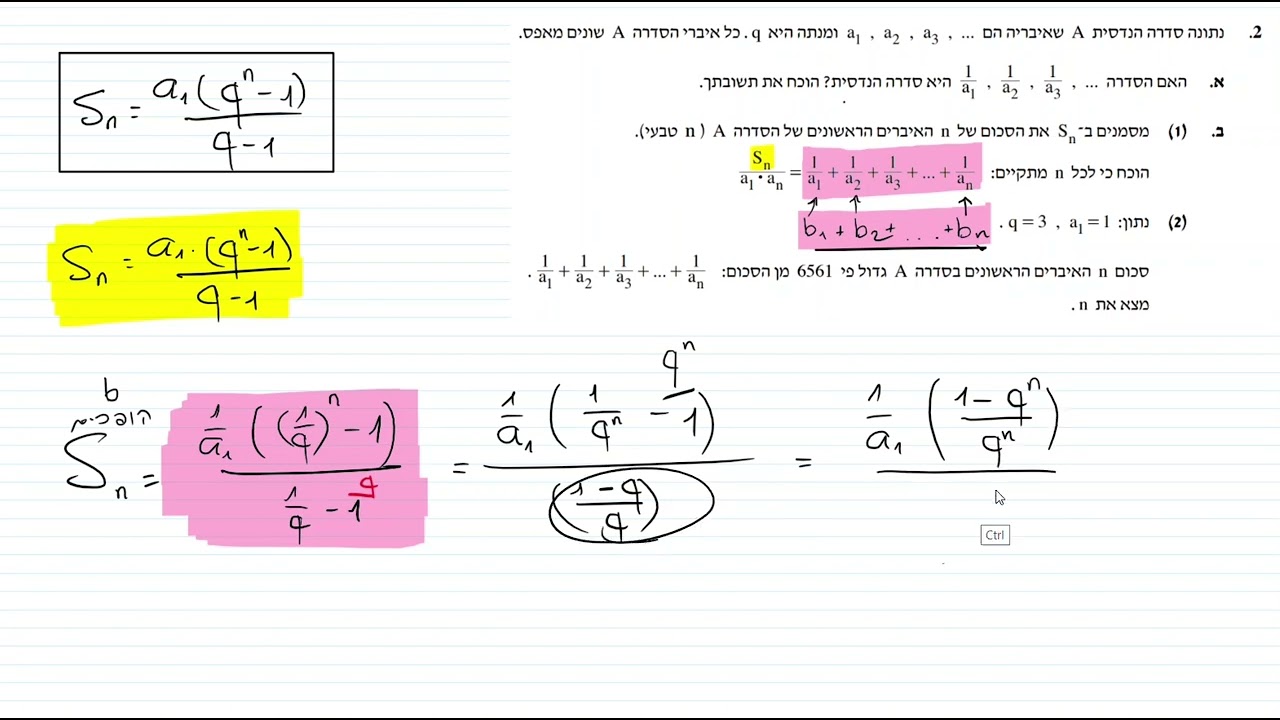 2. נתונה סדרה הנדסית A שאיבריה הם a₁ , a₂ , a₃ , ... ומנתה היא q . כל איברי הסדרה A שונים מאפס.
א. האם הסדרה 1/a₁ , 1/a₂ , 1/a₃ , ... היא סדרה הנדסית? הוכח את תשובתך.
ב. (1) מסמנים ב־Sₙ את הסכום של n האיברים הראשונים של הסדרה A ( n טבעי).
הוכח כי לכל n מתקיים: Sₙ/(a₁ · aₙ) = 1/a₁ + 1/a₂ + 1/a₃ + ... + 1/aₙ
b₁ + b₂ + ... + bₙ
(2) נתון: a₁ = 1 , q = 3 .
סכום n האיברים הראשונים בסדרה A גדול פי 6561 מן הסכום: 1/a₁ + 1/a₂ + 1/a₃ + ... + 1/aₙ .
מצא את n .
Sₙ = a₁(qⁿ - 1)/(q - 1)
Sₙ = a₁·(qⁿ - 1)/(q - 1)
b
הופכיים
Sₙ = 1/a₁((1/q)ⁿ - 1)/(1/q - 1^q) = 1/a₁(1/qⁿ - 1^qⁿ)/((1 - q)/q) = 1/a₁((1 - qⁿ)/qⁿ)/
Ctrl